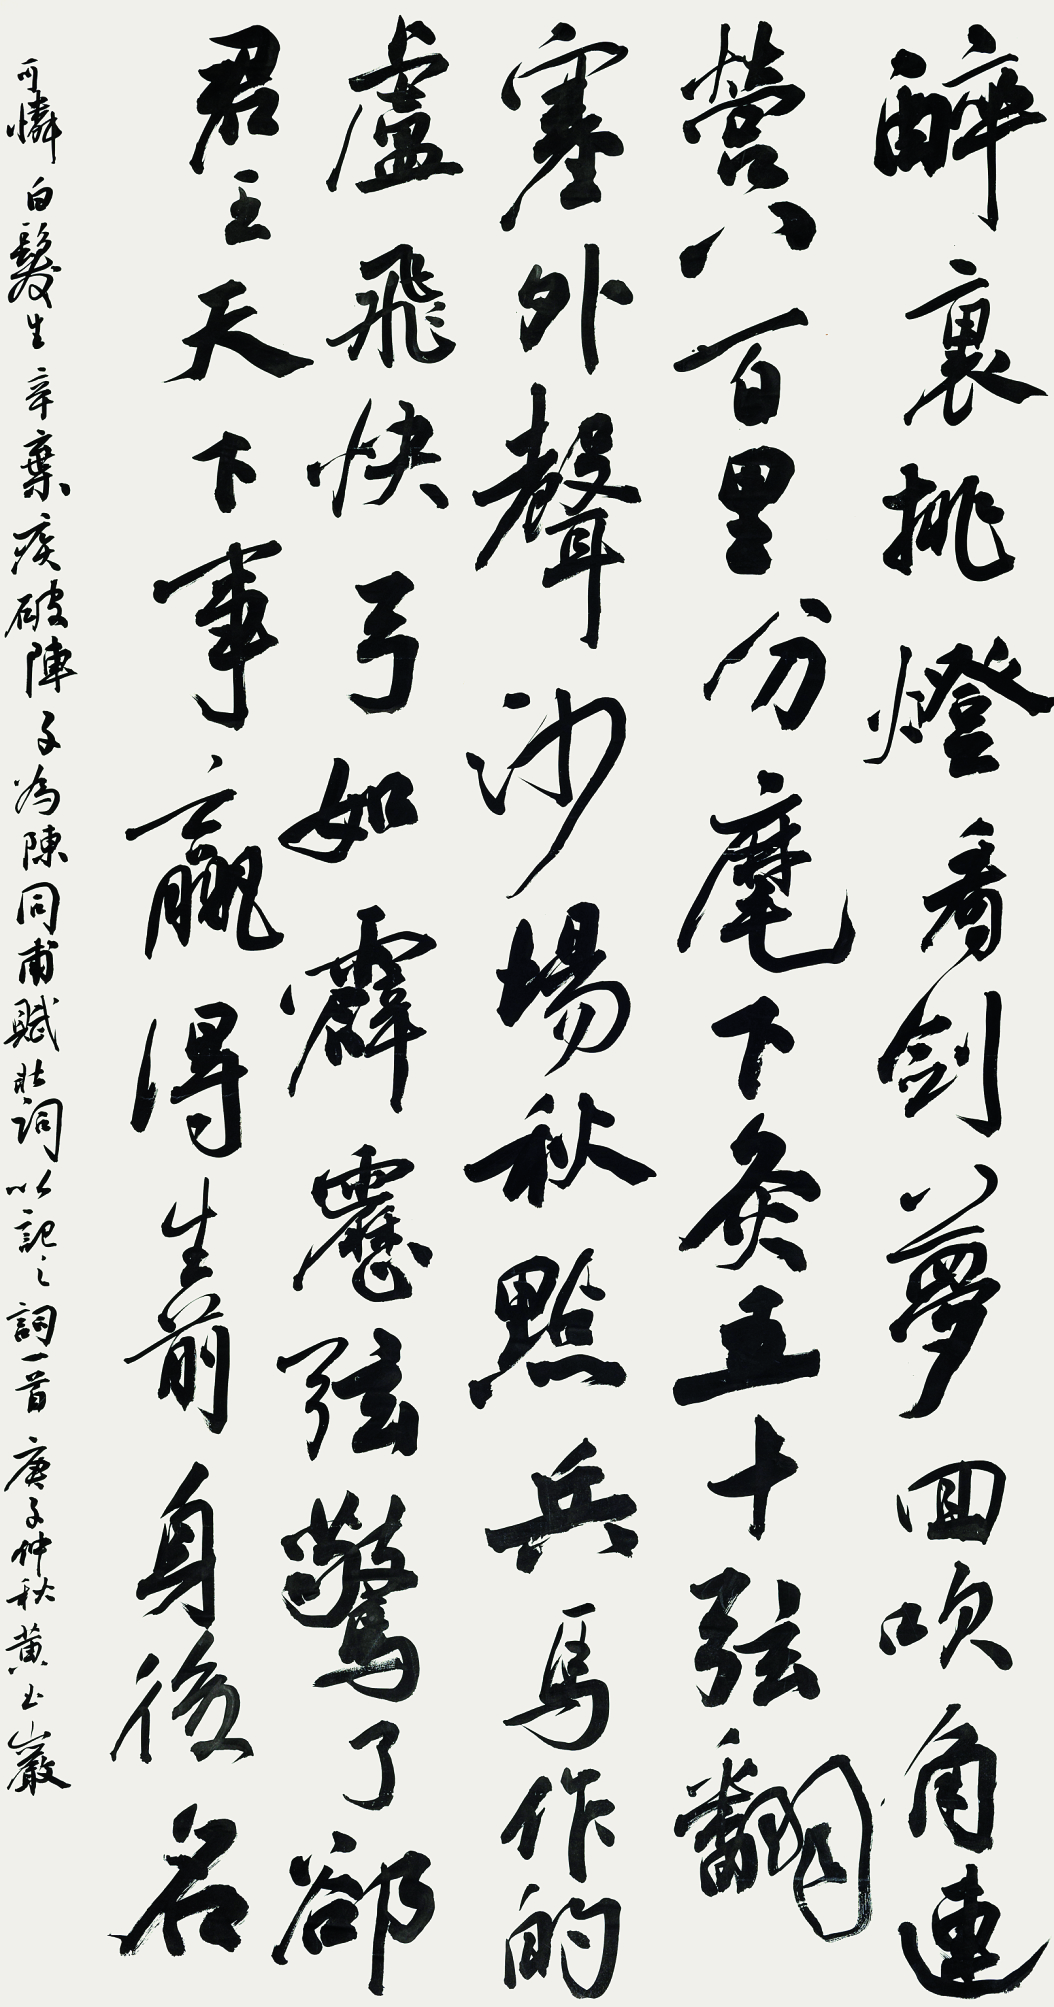 醉裏挑燈看劍夢回吹角連
營八百里分麾下炙五十弦翻
塞外聲沙場秋點兵馬作的
盧飛快弓如霹靂弦驚了卻
君王天下事贏得生前身後名
可憐白髮生辛棄疾破陣子為陳同甫賦壯詞以記之詞一首庚子仲秋黄玉巖